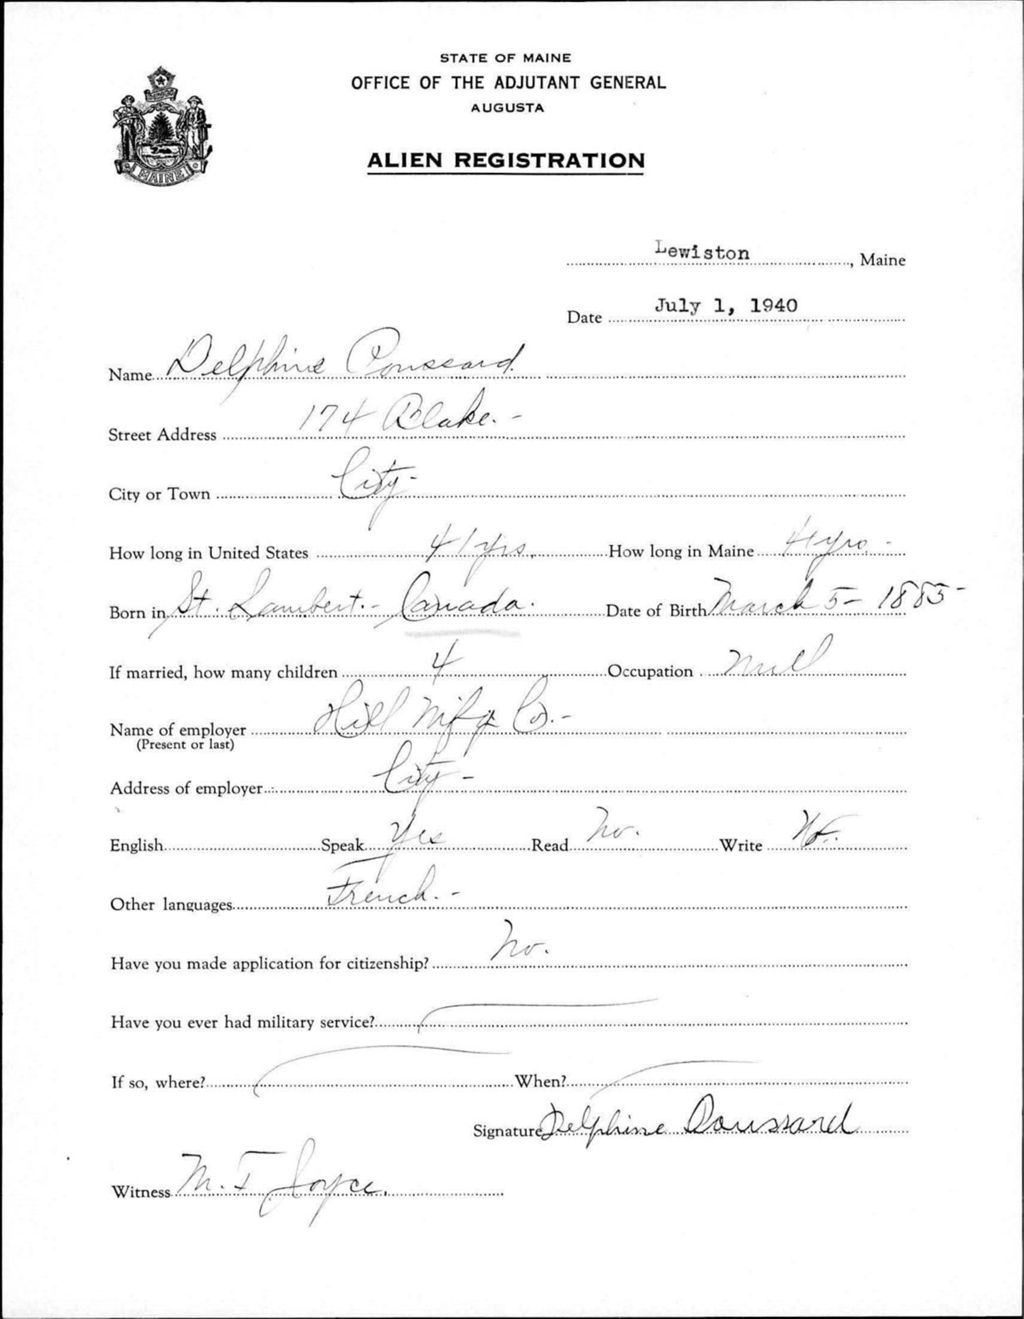 STATE OF MAINE
OFFICE OF THE ADJUTANT GENERAL
AUGUSTA
ALIEN REGISTRATION
MAINE
Lewiston, Maine
Date July 1, 1940
Name Delphine Poussard
Street Address 174 Blake.-
City or Town City-
How long in United States 41 yrs. How long in Maine 41 yrs-
Born in St. Lambert.- Canada. Date of Birth March 5-
If married, how many children 4 Occupation Mill
Name of employer Hill Mfg Co.-
(Present or last)
Address of employer City-
English Speak Yes Read No. Write No.
Other languages French.-
Have you made application for citizenship? No.
Have you ever had military service?
If so, where? When?
Signature Delphine Poussard
Witness M. F. Joyce.